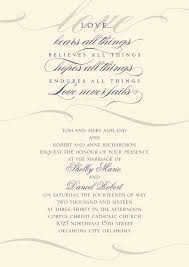 LOVE...
bears all things
BELIEVES ALL THINGS
hopes all things
ENDURES ALL THINGS
Love never fails
LORI AND MARY ASHLAND
AND
ROBERT AND ANNE RICHARDSON
REQUEST THE HONOUR OF YOUR PRESENCE AT
THE MARRIAGE OF
Shelby Marie
AND
Daniel Robert
ON SATURDAY THE FOURTEENTH OF MAY
TWO THOUSAND AND SIXTEEN
AT THREE-THIRTY IN THE AFTERNOON
CORPUS CHRISTI CATHOLIC CHURCH
NORTHEAST SIXTH STREET
OKLAHOMA CITY, OKLAHOMA